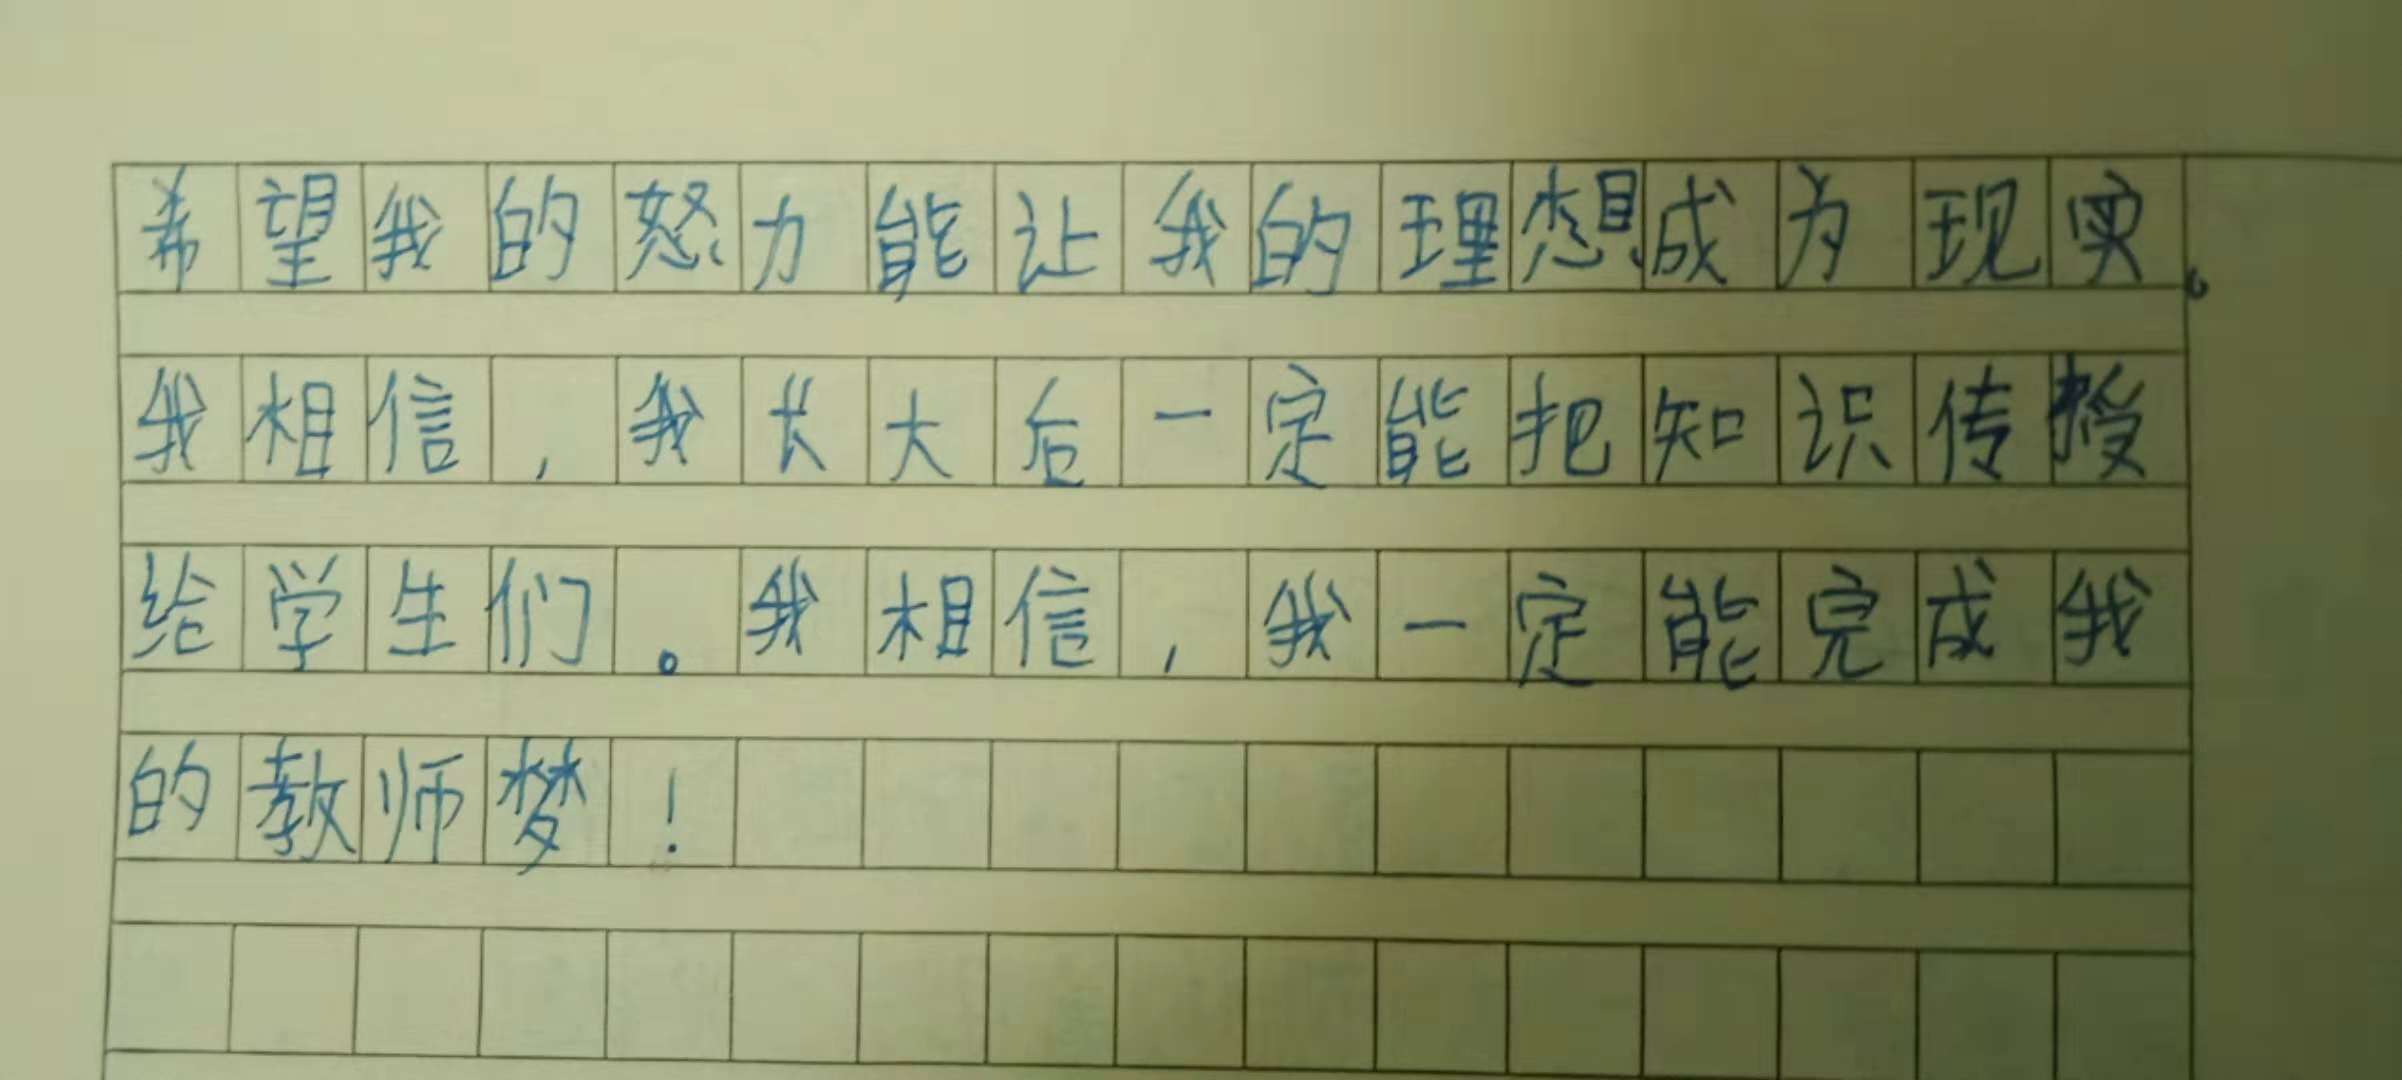 希望我的怒力能让我的理想成为现实。
我相信,我长大后一定能把知识传授
给学生们。我相信,我一定能完成我
的教师梦!